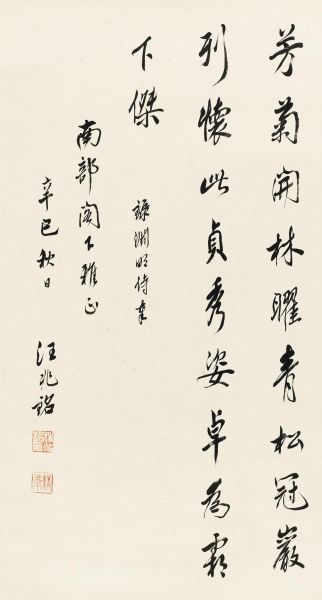 芳菊開林曜青松冠巖
列懷此貞秀姿卓為霜
下傑
錄淵明詩奉
南部閣下雅正
辛巳秋日
汪兆銘